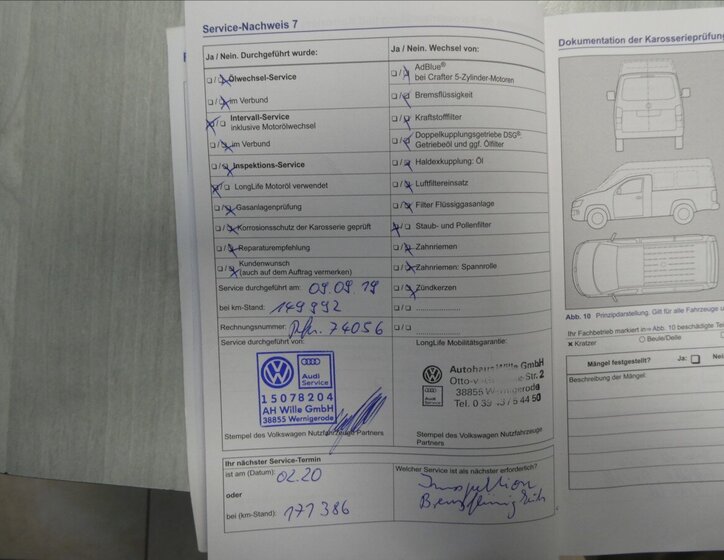 Service-Nachweis 7
Ja / Nein. Durchgeführt wurde:
Ölwechsel-Service
im Verbund
Intervall-Service
inklusive Motorölwechsel
im Verbund
Inspektions-Service
LongLife Motoröl verwendet
Gasanlagenprüfung
Korrosionsschutz der Karosserie geprüft
Reparaturempfehlung
Kundenwunsch
(auch auf dem Auftrag vermerken)
Service durchgeführt am: 09.09.19
bei km-Stand: 149992
Rechnungsnummer: 74056
Service durchgeführt von:
Audi
Service
15078204
AH Wille GmbH
38855 Wernigerode
Stempel des Volkswagen Nutzfahrzeuge Partners
Ja / Nein. Wechsel von:
AdBlue®
bei Crafter 5-Zylinder-Motoren
Bremsflüssigkeit
Kraftstofffilter
Doppelkupplungsgetriebe DSG®:
Getriebeöl und ggf. Ölfilter
Haldexkupplung: Öl
Luftfiltereinsatz
Filter Flüssiggasanlage
Staub- und Pollenfilter
Zahnriemen
Zahnriemen: Spannrolle
Zündkerzen
LongLife Mobilitätsgarantie:
Autohaus Wille GmbH
38855 Wernigerode
Audi
Service
Stempel des Volkswagen Nutzfahrzeuge
Partners
Ihr nächster Service-Termin
ist am (Datum): 02.20
oder
bei (km-Stand): 171386
Welcher Service ist als nächster erforderlich?
Inspektion
Dokumentation der Karosserieprüfung
Abb. 10 Prinzipdarstellung. Gilt für alle Fahrzeuge
Ihr Fachbetrieb markiert in ⇒ Abb. 10 beschädigte
Kratzer
Beule/Delle
Mängel festgestellt? Ja:
Beschreibung der Mängel: